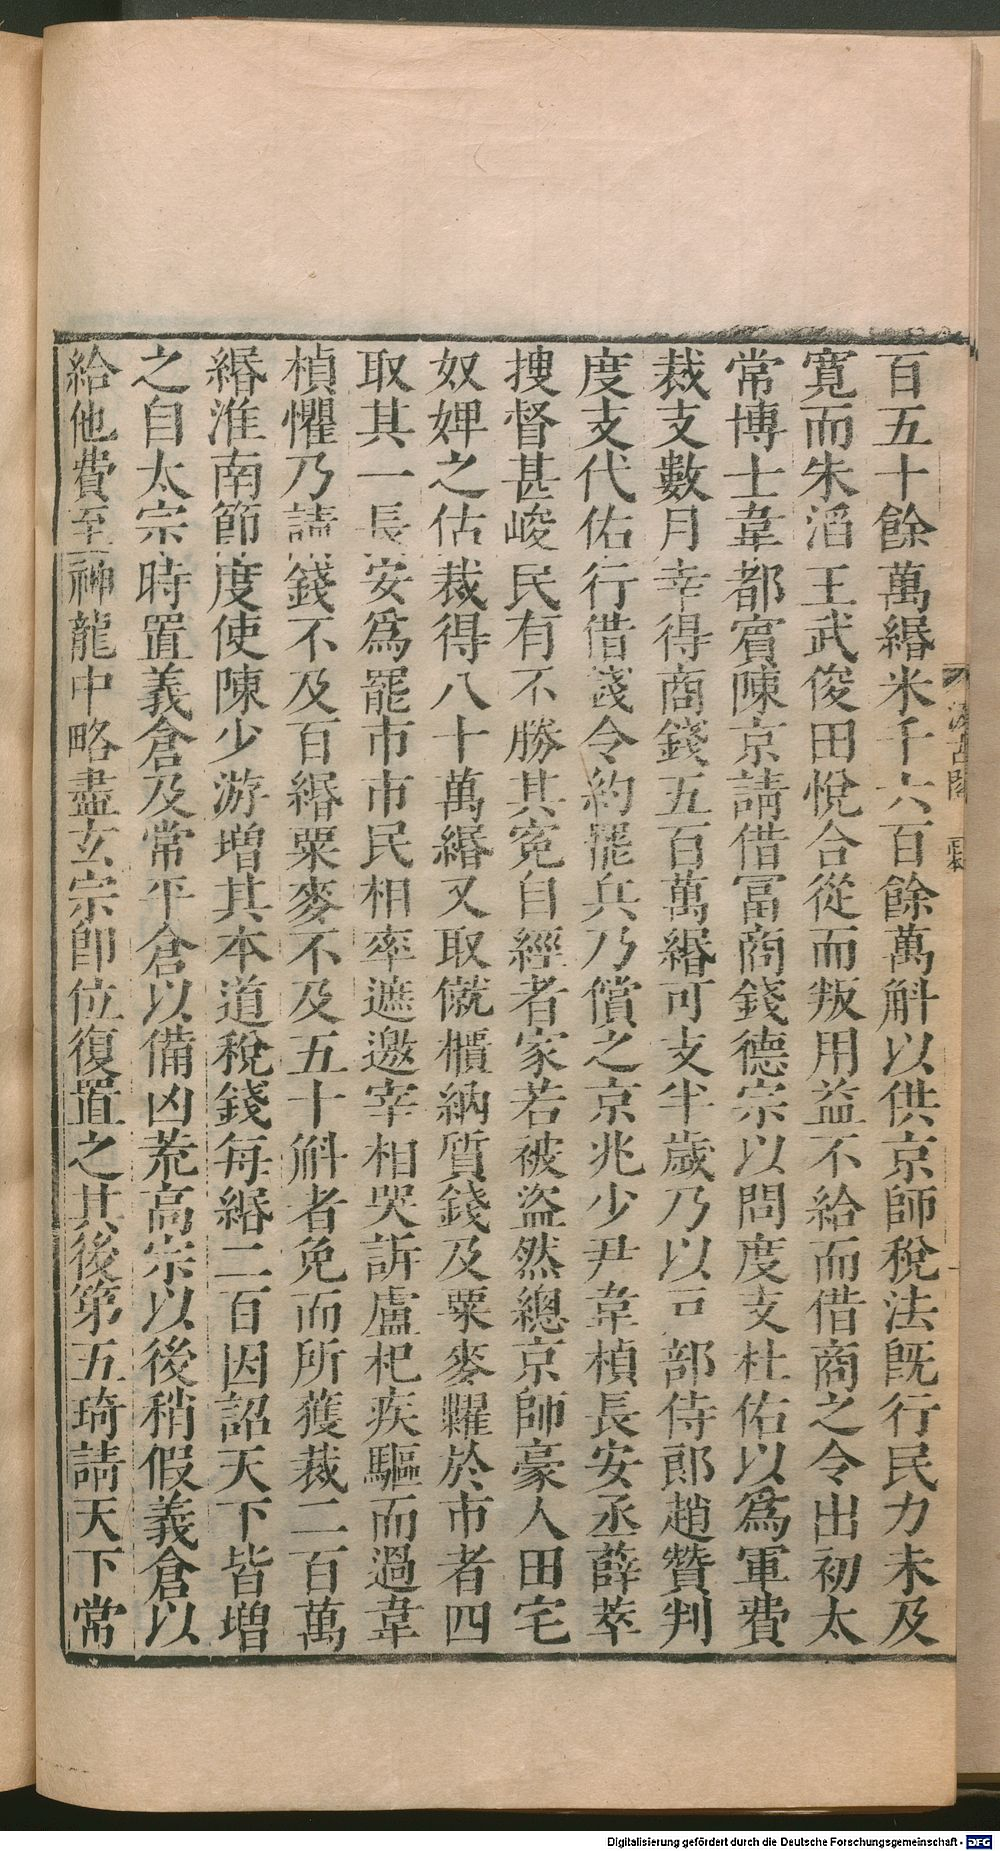 百五十餘萬緡米千六百餘萬斛以供京師稅法旣行民力未及
寬而朱滔王武俊田悅合從而叛用益不給而借商之令出初太
常博士韋都賓陳京請借富商錢德宗以問度支杜佑以爲軍費
裁支數月幸得商錢五百萬緡可支半歲乃以戸部侍郎趙贊判
度支代佑行借錢令約罷兵乃償之京兆少尹韋楨長安丞薛萃
搜督甚峻民有不勝其寃自經者家若被盜然總京師豪人田宅
奴婢之估裁得八十萬緡又取僦櫃納質錢及粟麥糶於市者四
取其一長安爲罷市市民相率遮邀宰相哭訴盧杞疾驅而過韋
楨懼乃請錢不及百緡粟麥不及五十斛者免而所獲裁二百萬
緡淮南節度使陳少游增其本道稅錢每緡二百因詔天下皆增
之自太宗時置義倉及常平倉以備凶荒高宗以後稍假義倉以
給他費至神龍中略盡玄宗卽位復置之其後第五琦請天下常
汲古閣
正本
Digitalisierung gefördert durch die Deutsche Forschungsgemeinschaft - DFG